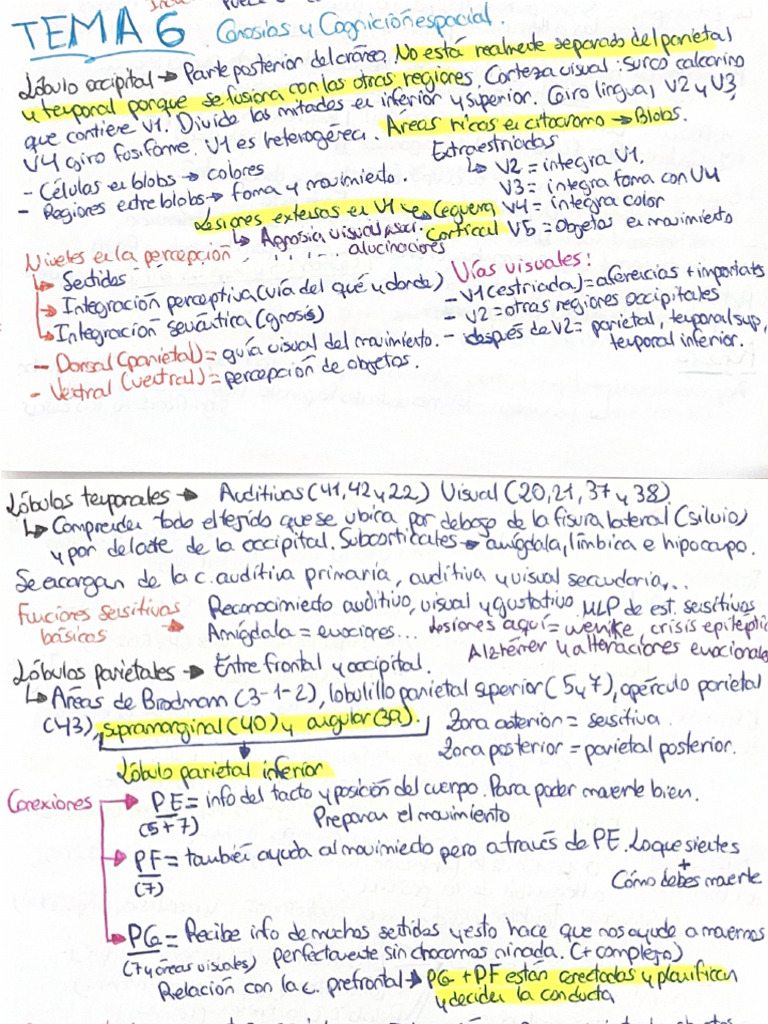 TEMA 6 Gnosias y Cognición espacial.
Lóbulo occipital → Parte posterior del cráneo. No está realmente separado del parietal
y temporal porque se fusiona con las otras regiones. Corteza visual: surco calcarino
que contiene V1. Divide las mitades en inferior y superior. Giro lingual V2 y V3,
V4 giro fusiforme. V1 es heterogénea. Áreas ricas en citocromo → Blobs.
- Células en blobs → colores
- Regiones entre blobs → forma y movimiento.
Extraestriadas
↳ V2 = integra V1.
V3 = integra forma con V4
V4 = integra color
V5 = Objetos en movimiento
Lesiones extensas en V1 → Ceguera Cortical
↳ Agnosia visual
alucinaciones
Niveles en la percepción
↳ Sentidos
↳ Integración perceptiva (vía del qué y donde)
↳ Integración semántica (gnosis)
- Dorsal (parietal) = guía visual del movimiento.
- Ventral (ventral) = percepción de objetos.
Vías visuales:
- V1 (estriada) = aferencias + importantes
- V2 = otras regiones occipitales
- después de V2 = parietal, temporal sup,
temporal inferior.
Lóbulos temporales → Auditivas (41, 42 y 22) Visual (20, 21, 37 y 38)
↳ Comprenden todo el tejido que se ubica por debajo de la fisura lateral (silvio)
y por delante de la occipital. Subcorticales → amígdala, límbica e hipocampo.
Se encargan de la c. auditiva primaria, auditiva y visual secundaria,...
Funciones sensitivas básicas → Reconocimiento auditivo, visual y gustativo, MLP de est. sensitivos
Amígdala = emociones... Lesiones aquí = wernike, crisis epilepti
Alzhéimer y alteraciones emocionales
Lóbulos parietales → Entre frontal y occipital.
↳ Áreas de Brodmann (3-1-2), lobulillo parietal superior (5 y 7), opérculo parietal
(43), supramarginal (40) y angular (39).
Zona anterior = sensitiva.
Zona posterior = parietal posterior.
Lóbulo parietal inferior
Conexiones
→ PE = info del tacto y posición del cuerpo. Para poder moverte bien.
(5+7) Preparan el movimiento
→ PF = también ayuda al movimiento pero a través de PE. Lo que sientes
(7) + Cómo debes moverte
→ PG = Recibe info de muchos sentidos y esto hace que nos ayude a movernos
(7 y áreas visuales) perfectamente sin chocarnos ni nada. (+ complejo)
Relación con la c. prefrontal → PG + PF están conectadas y planifican
y deciden la conducta